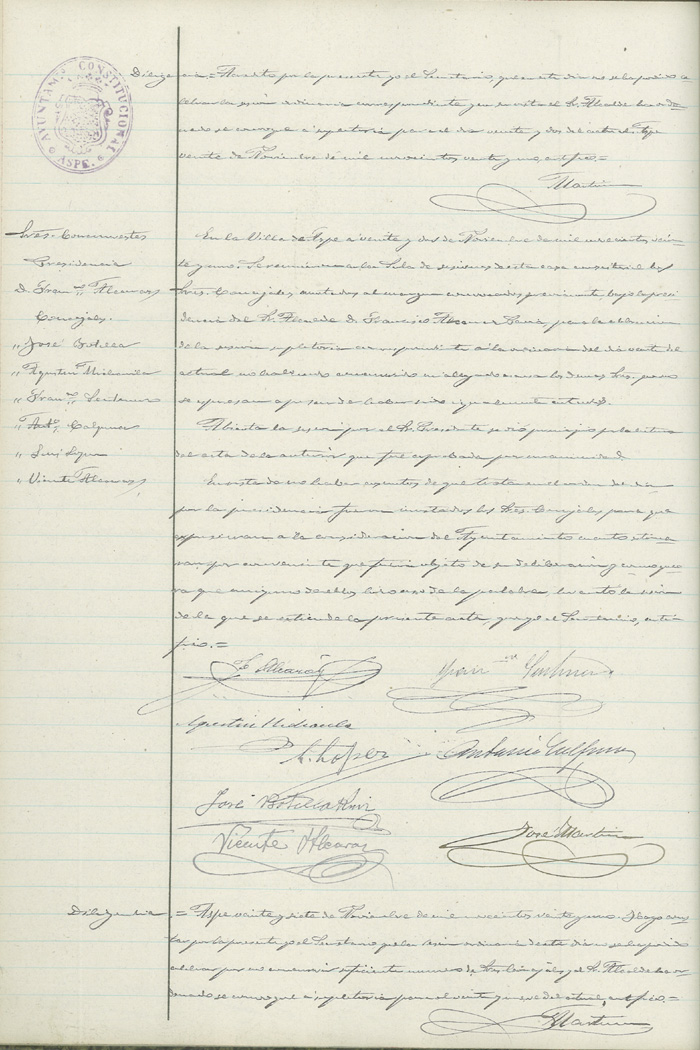 AYUNTAMTO CONSTITUCIONAL
ASPE.
Diligencia.= Acredito por la presente yo el Secretario, que en este día no se ha podido
celebrar la sesión ordinaria correspondiente y en su vista el Sr. Alcalde ha orde-
nado se convoque a supletoria para el día veinte y dos del actual. Aspe
veinte de Noviembre de mil novecientos veinte y uno, certifico.=
Martín
Sres. Concurrentes
Presidencia
D. Franco Alcaraz
Concejales.
" José Botella
" Agustín Mirambell
" Franco
" Anto Calpena
" Luis López
" Vicente Alcaraz
En la Villa de Aspe a veinte y dos de Noviembre de mil novecientos vein-
te y uno. Se reunieron en la Sala de sesiones de esta casa consistorial los
Sres. Concejales anotados al margen convocados previamente, bajo la presi-
dencia del Sr. Alcalde D. Francisco Alcaraz para la celebración
de la sesión supletoria correspondiente a la ordinaria del día veinte del
actual, no habiendo concurrido ni alegado excusa los demás Sres. que no
se expresan a pesar de haber sido igualmente citados.
Abierta la sesión por el Sr. Presidente se dió principio por la lectura
del acta de la anterior que fué aprobada por unanimidad.
En vista de no haber asuntos de que tratar en el orden del día
por la presidencia fueron invitados los Sres. Concejales para que
expusieran a la consideración del Ayuntamiento cuanto estima-
ran por conveniente que fuera objeto de su deliberación y como quie-
ra que ninguno de ellos hizo uso de la palabra, levantó la sesión
de la que se extiende la presente acta, que yo el Secretario, certi-
fico.=
F. Alcaraz
Agustín
L. López
Antonio Calpena
José Botella Ruiz
Vicente Alcaraz
José Martín
Diligencia.= Aspe veinte y siete de Noviembre de mil novecientos veinte y uno. Hago cons-
tar por la presente yo el Secretario que la sesión ordinaria de este día no se ha podido
celebrar por no concurrir suficiente número de Sres. Concejales y el Sr. Alcalde ha or-
denado se convoque a supletoria para el veinte y nueve del actual, certifico.=
Martín